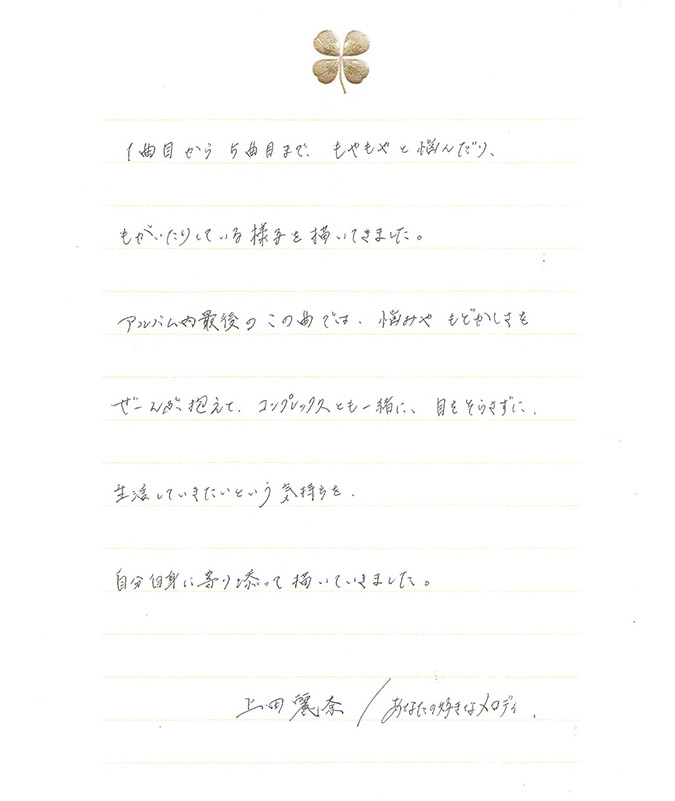 1曲目から5曲目まで、もやもやと悩んだり、
もがいたりしている様子を描いてきました。
アルバム内最後のこの曲では、悩みやもどかしさを
ぜーんぶ抱えて、コンプレックスとも一緒に、目をそらさずに、
生活していきたいという気持ちを、
自分自身に寄り添って描いていきました。
上田麗奈／あなたの好きなメロディ、